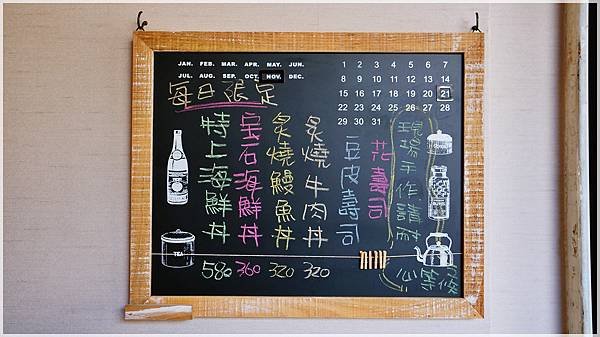 JAN. FEB. MAR. APR. MAY. JUN.
JUL. AUG. SEP. OCT. NOV. DEC.
1 2 3 4 5 6 7
8 9 10 11 12 13 14
15 16 17 18 19 20 21
22 23 24 25 26 27 28
29 30 31
每日限定
特上海鮮丼 580
宝石海鮮丼 360
炙燒鰻魚丼 320
炙燒牛肉丼 320
豆皮壽司
花壽司
現場手作請耐
心等候
TEA